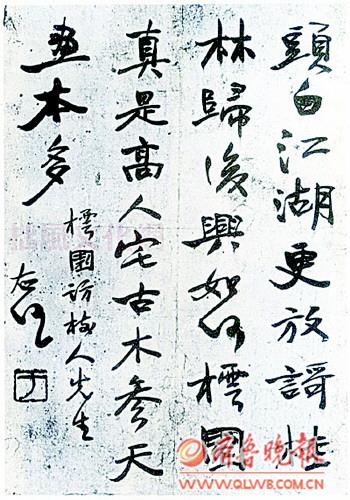 頭白江湖更放謌桂
林歸後興如何樗園
真是高人宅古木參天
畫本多
樗園訪梅人先生
右任
齐鲁晚报
WWW.QLWB.COM.CN